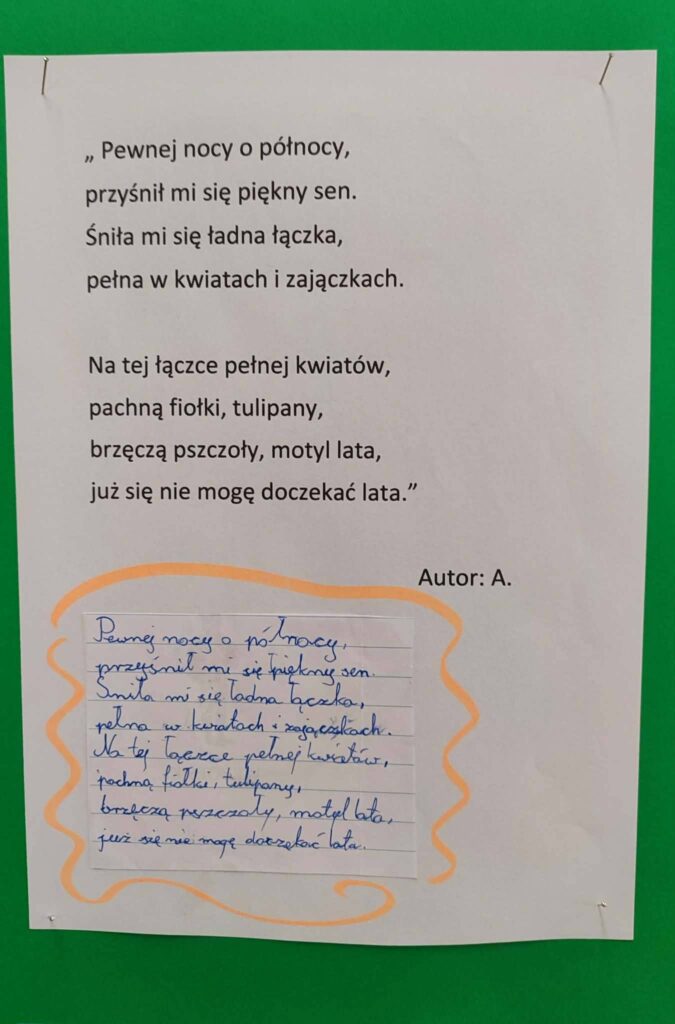 „ Pewnej nocy o północy,
przyśnił mi się piękny sen.
Śniła mi się ładna łączka,
pełna w kwiatach i zajączkach.
Na tej łączce pełnej kwiatów,
pachną fiołki, tulipany,
brzęczą pszczoły, motyl lata,
już się nie mogę doczekać lata.”
Autor: A.
Pewnej nocy o północy,
przyśnił mi się piękny sen.
Śniła mi się ładna łączka,
pełna w kwiatach i zajączkach.
Na tej łączce pełnej kwiatów,
pachną fiołki, tulipany,
brzęczą pszczoły, motyl lata,
już się nie mogę doczękać lata.